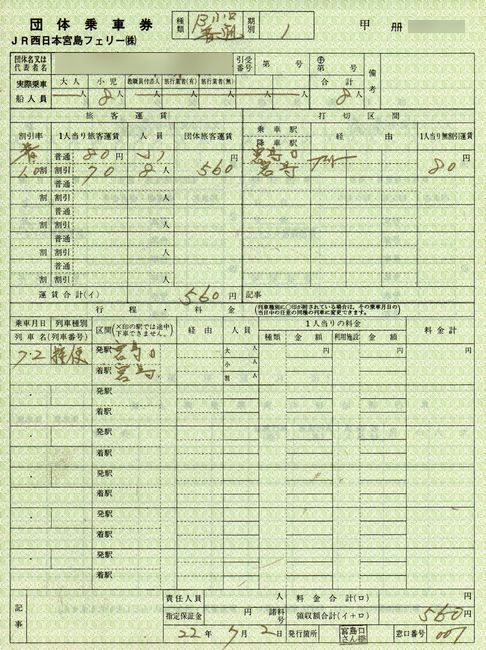 団体乗車券
種類
期別
1
甲
冊
JR西日本宮島フェリー㈱
団体名又は代表者名
引受番号
第 号
第 号
備考
実際乗車船人員
大人 小児 教職員付添人 旅行業者(有) 旅行業者(無) 合計
人 8人 人 人 人 8人
旅客運賃
打切区間
割引率 1人当り旅客運賃 人員 団体旅客運賃
乗車駅 降車駅 経由 1人当り無割引運賃
普通 80円 人 円
宮島口 宮島 80円
1.0割 割引 70 8人 560
普通
割 割引
普通
割 割引
普通
割 割引
普通
割 割引
運賃合計(イ) 560円 記事
行程・料金
(列車種別に○印が付されている場合は、その乗車月日の当日中の任意の同種の列車に変更できます。)
乗車月日 列車種別
列車名(列車番号)
区間(×印の駅では途中下車できません。)
経由 人員
1人当りの料金
種類 金額 利用施設 金額
料金計
7・2 発駅 宮島口 大 人 円 円 円
着駅 宮島 小 人
割 人
発駅
着駅
発駅
着駅
発駅
着駅
発駅
着駅
発駅
着駅
記事
責任人員 人 人 料金合計(ロ) 円
指定保証金 円 諸料号 領収額合計(イ+ロ) 560円
22年7月2日 発行箇所 宮島口さん橋 窓口番号 001